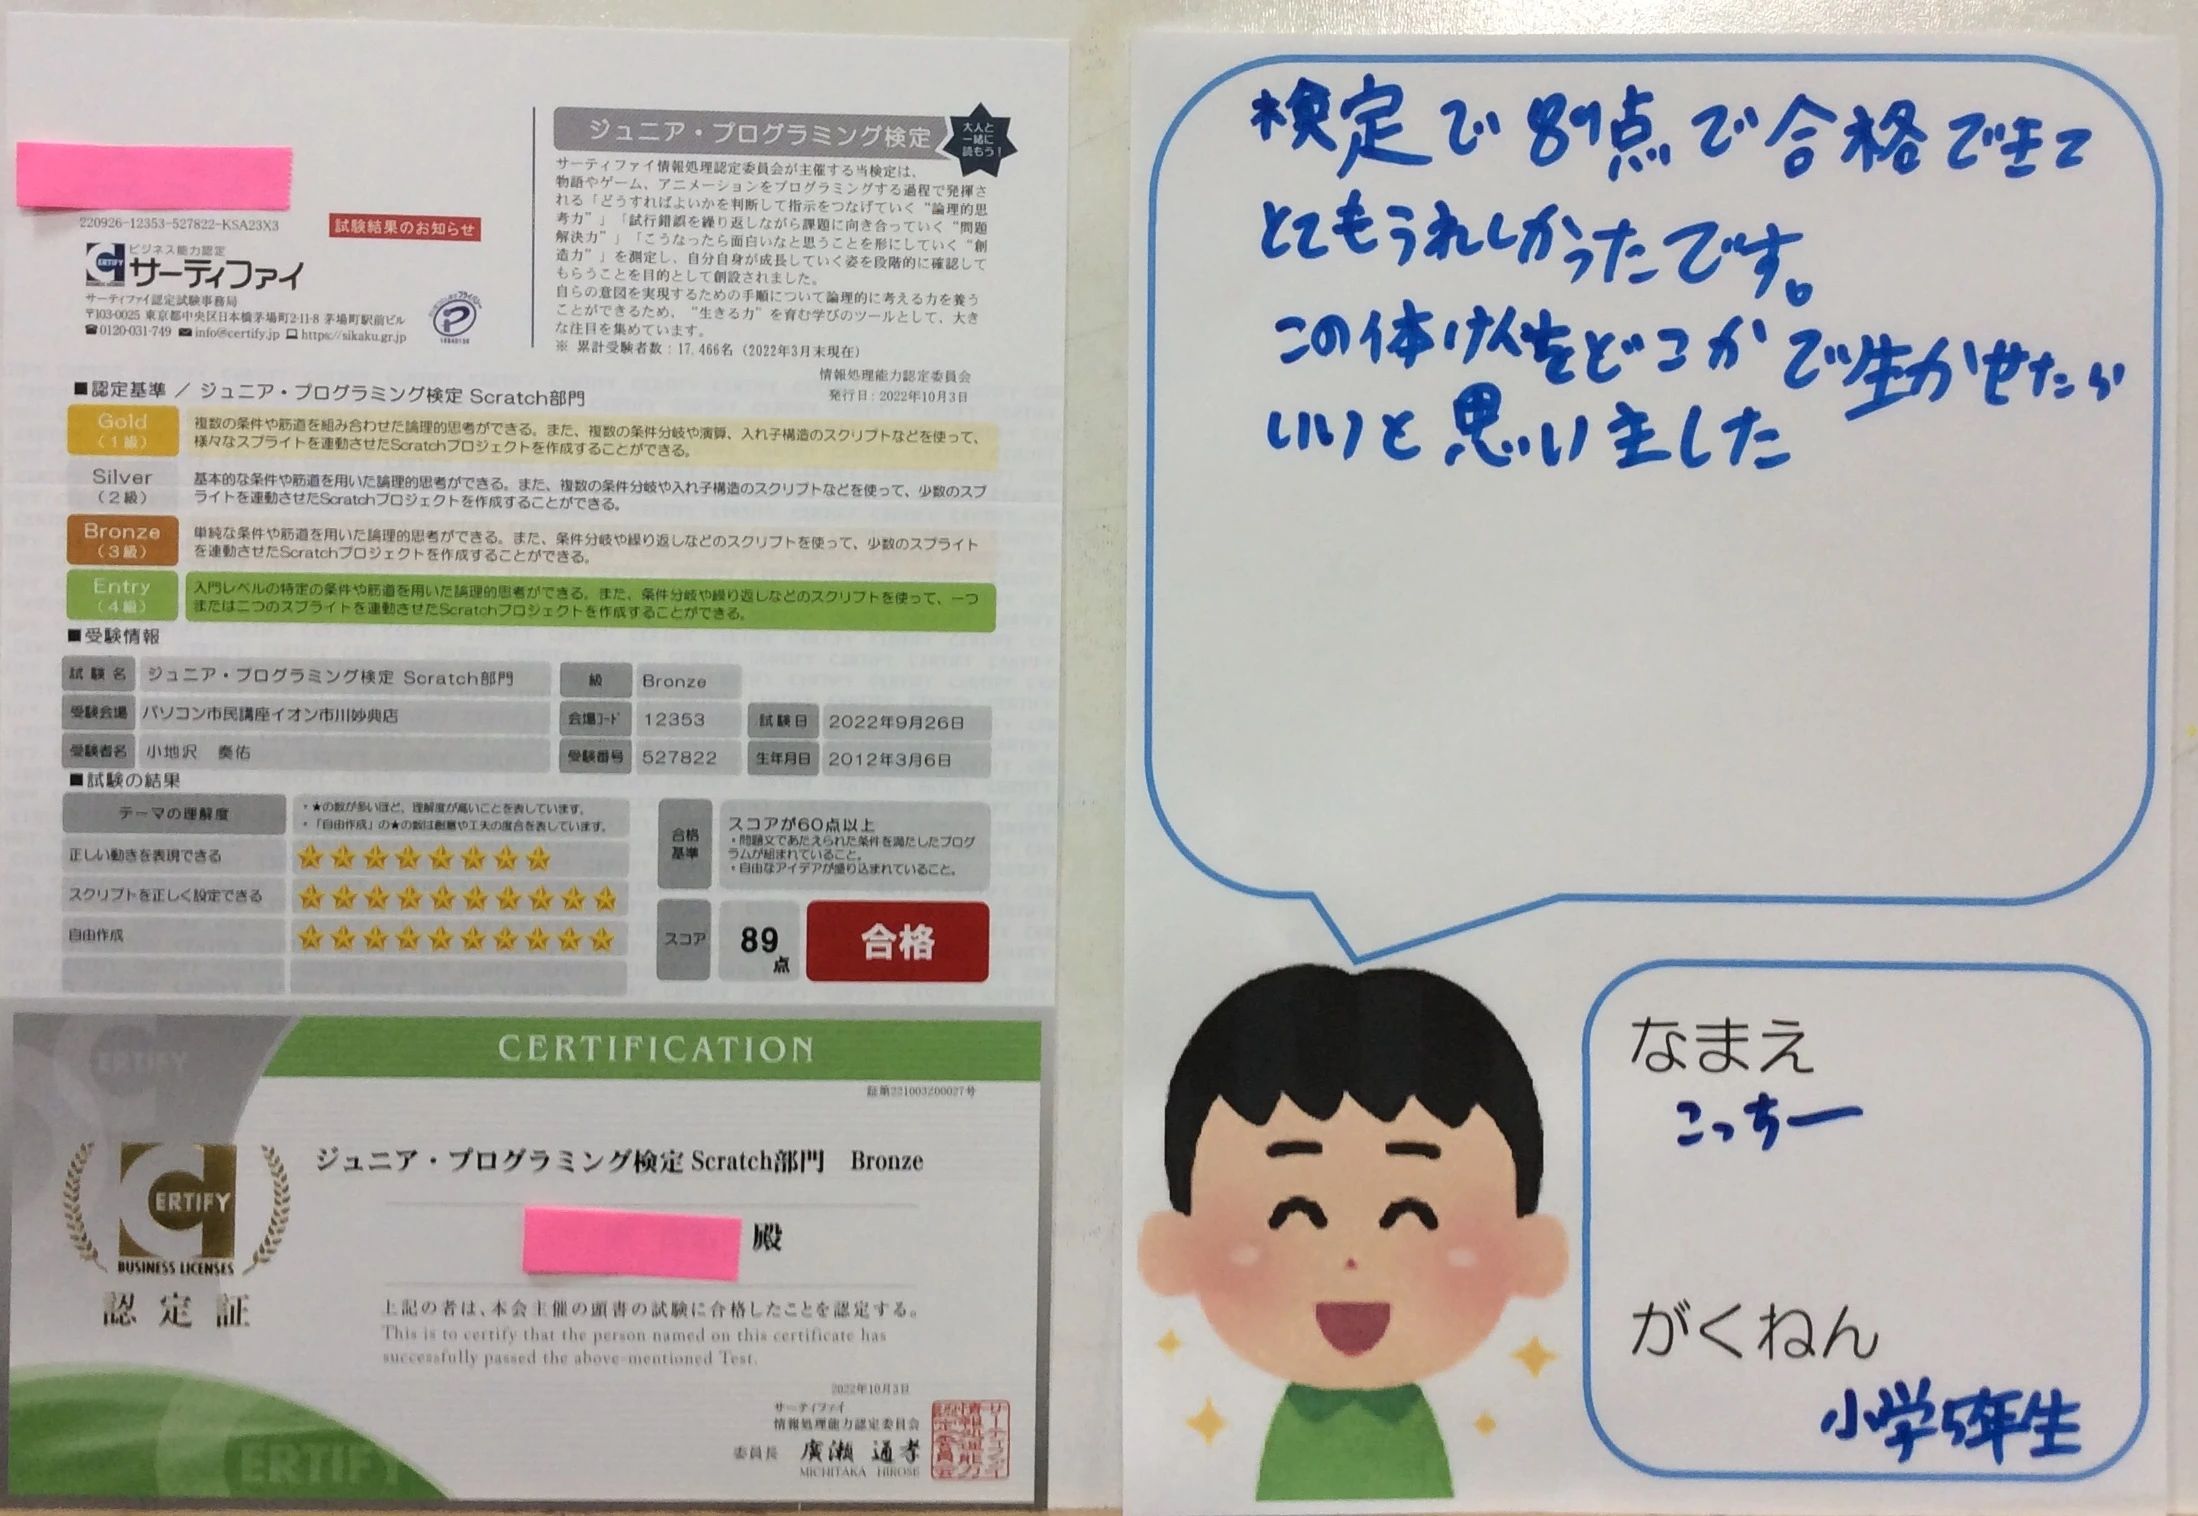 220926-12353-527822-KSA23X3
試験結果のお知らせ
ビジネス能力認定
CERTIFY サーティファイ
サーティファイ認定試験事務局
〒103-0025 東京都中央区日本橋茅場町2-11-8 茅場町駅前ビル
☎0120-031-749 ✉info@certify.jp https://sikaku.gr.jp
ジュニア・プログラミング検定
大人と
一緒に
読もう!
サーティファイ情報処理認定委員会が主催する当検定は、
物語やゲーム、アニメーションをプログラミングする過程で発揮さ
れる「どうすればよいかを判断して指示をつなげていく“論理的思
考力”」「試行錯誤を繰り返しながら課題に向き合っていく“問題
解決力”」「こうなったら面白いなと思うことを形にしていく“創
造力”」を測定し、自分自身が成長していく姿を段階的に確認して
もらうことを目的として創設されました。
自らの意図を実現するための手順について論理的に考える力を養う
ことができるため、“生きる力”を育む学びのツールとして、大き
な注目を集めています。
※ 累計受験者数:17,466名(2022年3月末現在)
情報処理能力認定委員会
発行日:2022年10月3日
■認定基準 / ジュニア・プログラミング検定 Scratch部門
Gold
(1級)
複数の条件や筋道を組み合わせた論理的思考ができる。また、複数の条件分岐や演算、入れ子構造のスクリプトなどを使って、
様々なスプライトを連動させたScratchプロジェクトを作成することができる。
Silver
(2級)
基本的な条件や筋道を用いた論理的思考ができる。また、複数の条件分岐や入れ子構造のスクリプトなどを使って、少数のスプ
ライトを連動させたScratchプロジェクトを作成することができる。
Bronze
(3級)
単純な条件や筋道を用いた論理的思考ができる。また、条件分岐や繰り返しなどのスクリプトを使って、少数のスプライト
を連動させたScratchプロジェクトを作成することができる。
Entry
(4級)
入門レベルの特定の条件や筋道を用いた論理的思考ができる。また、条件分岐や繰り返しなどのスクリプトを使って、一つ
または二つのスプライトを連動させたScratchプロジェクトを作成することができる。
■受験情報
試験名 ジュニア・プログラミング検定 Scratch部門 級 Bronze
受験会場 パソコン市民講座イオン市川妙典店 会場コード 12353 試験日 2022年9月26日
受験者名 小地沢 奏佑 受験番号 527822 生年月日 2012年3月6日
■試験の結果
テーマの理解度
・★の数が多いほど、理解度が高いことを表しています。
・「自由作成」の★の数は創意や工夫の度合を表しています。
正しい動きを表現できる
スクリプトを正しく設定できる
自由作成
合格
基準
スコアが60点以上
・問題文であたえられた条件を満たしたプログ
ラムが組まれていること。
・自由なアイデアが盛り込まれていること。
スコア 89点 合格
CERTIFICATION
証第221003200027号
CERTIFY
BUSINESS LICENSES
認定証
ジュニア・プログラミング検定 Scratch部門 Bronze
殿
上記の者は、本会主催の頭書の試験に合格したことを認定する。
This is to certify that the person named on this certificate has
successfully passed the above-mentioned Test.
2022年10月3日
サーティファイ
情報処理能力認定委員会
委員長 廣瀬 通孝
MICHITAKA HIROSE
検定で89点で合格できて
とてもうれしかったです。
この体けんをどこかで生かせたら
いいと思いました
なまえ
こっちー
がくねん
小学5年生